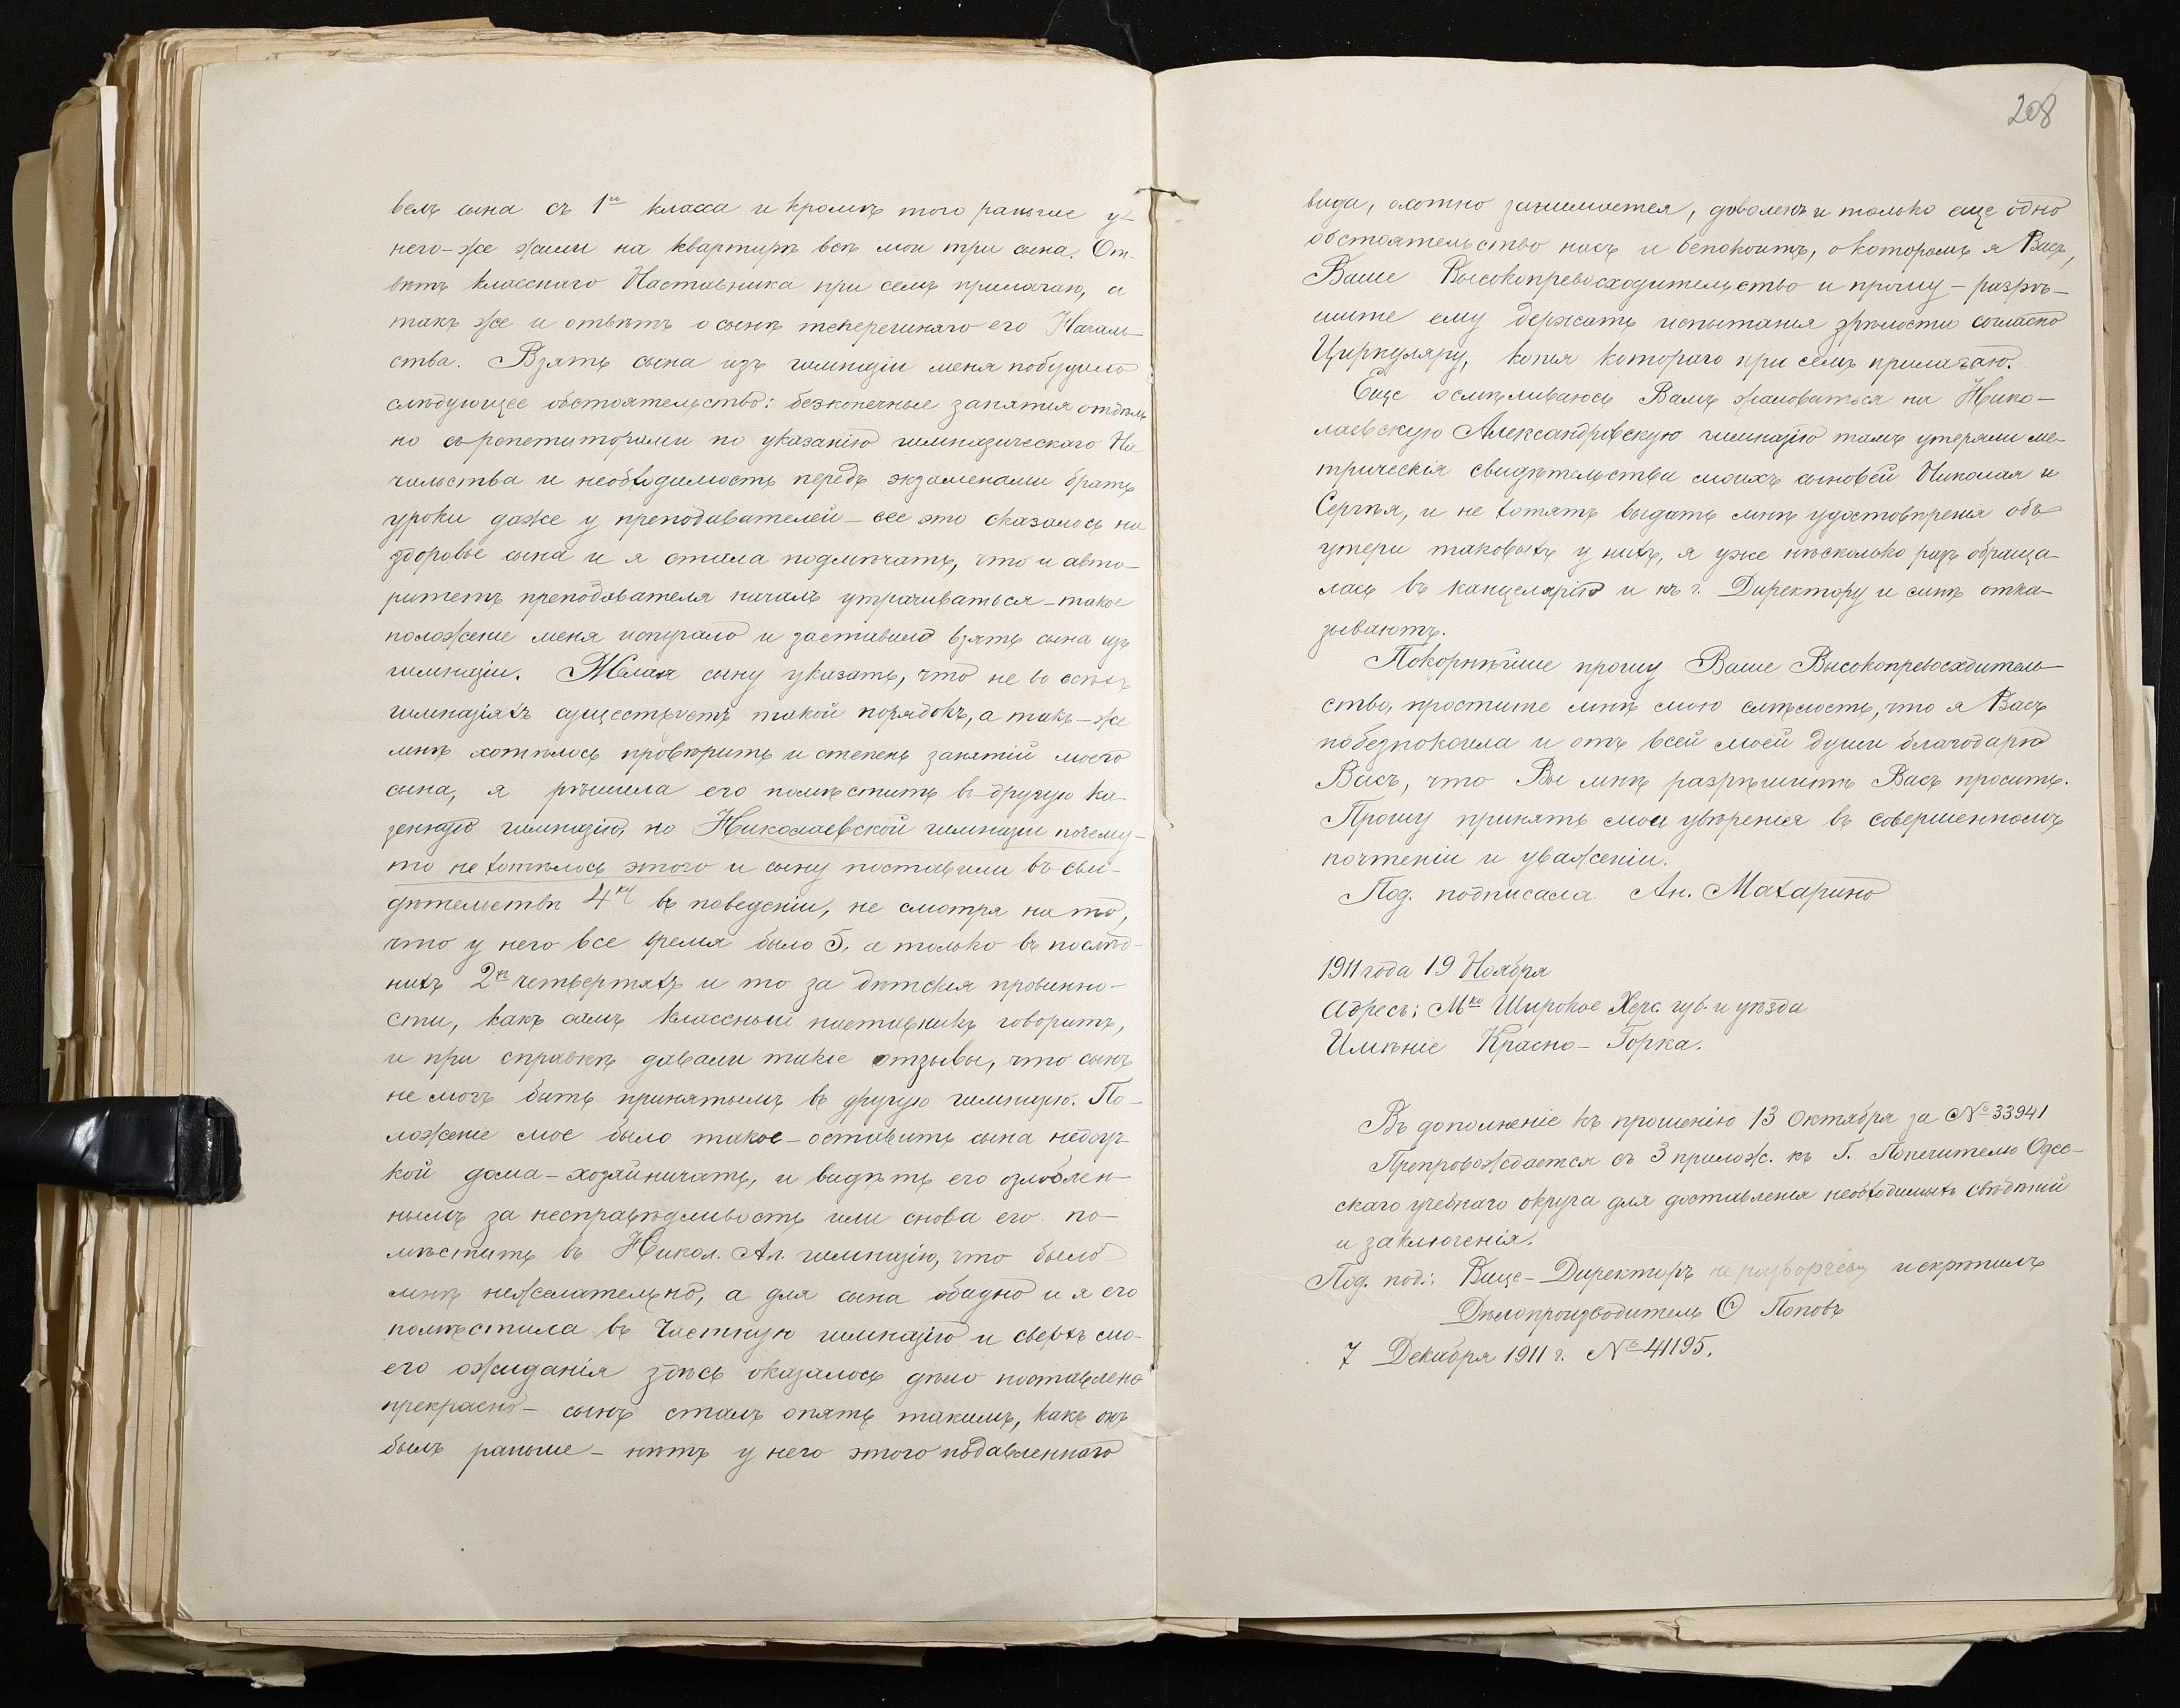 велъ сына съ 1го класса и кромѣ того раньше у
него-же жили на квартирѣ всѣ мои три сына. От-
вѣтъ класснаго Наставника при семъ прилагаю, а
такъ же и отвѣтъ о сынѣ теперешняго его Началь-
ства. Взять сына изъ гимназіи меня побудило
слѣдующее обстоятельство: безконечныя занятія отдѣль
но съ репетиторами по указанію гимназическаго На
чальства и необходимость передъ экзаменами брать
уроки даже у преподавателей – все это сказалось на
здоровье сына и я стала подмѣчать, что и авто-
ритетъ преподавателя началъ утрачиваться – такое
положеніе меня испугало и заставило взять сына изъ
гимназіи. Желая сыну указать, что не во всѣхъ
гимназіяхъ существуетъ такой порядокъ, а такъ-же
мнѣ хотѣлось провѣрить и степень занятій моего
сына, я рѣшила его помѣстить въ другую ка-
зенную гимназію, но Николаевской гимназіи почему-
то не хотѣлось этого и сыну поставили въ сви-
дѣтельствѣ 4ку въ поведеніи, не смотря на то,
что у него все время было 5, а только въ послѣд-
нихъ 2хъ четвертяхъ и то за дѣтскія провинно-
сти, какъ самъ классный наставникъ говоритъ,
и при справкѣ давали такіе отзывы, что сынъ
не могъ быть принятымъ въ другую гимназію. По-
ложеніе мое было такое – оставить сына недоуч-
кой дома – хозяйничать, и видѣть его озлоблен-
нымъ за несправедливость или снова его по-
мѣстить въ Никол. Ал. гимназію, что было
мнѣ нежелательно, а для сына обидно и я его
помѣстила въ Частную гимназію и сверхъ мо-
его ожиданія здѣсь оказалось дѣло поставлено
прекрасно – сынъ сталъ опять такимъ, какъ онъ
былъ раньше – нѣтъ у него этого подавленнаго
208
вида, охотно занимается, доволенъ и только еще одно
обстоятельство насъ и безпокоитъ, о которомъ я Васъ,
Ваше Высокопревосходительство и прошу – разрѣ-
шите ему держать испытанія зрѣлости согласно
Циркуляру, копія котораго при семъ прилагаю.
Еще осмѣливаюсь Вамъ жаловаться на Нико-
лаевскую Александровскую гимназію тамъ утеряли ме-
трическія свидѣтельства моихъ сыновей Николая и
Сергѣя, и не хотятъ выдать мнѣ удостовѣренія объ
утери таковыхъ у нихъ, я уже нѣсколько разъ обраща-
лась въ канцелярію и къ г. Директору и мнѣ отка-
зываютъ.
Покорнѣйше прошу Ваше Высокопревосходитель-
ство, простите мнѣ мою смѣлость, что я Васъ
побезпокоила и отъ всей моей души благодарю
Васъ, что Вы мнѣ разрѣшите Васъ просить.
Прошу принять мои увѣренія въ совершенномъ
почтеніи и уваженіи.
Под. подписала Ан. Махарино
1911 года 19 Ноября
Адресъ: Мко Широкое Херс. губ. и уѣзда
Имѣніе Красно-Горка.
Въ дополненіе къ прошенію 13 Октября за № 33941
Препровождается съ 3 прилож. къ Г. Попечителю Одес-
скаго учебнаго округа для доставленія необходимыхъ свѣдѣній
и заключенія.
Под. под.: Вице-Директоръ неразборчево и скрѣпилъ
Дѣлопроизводитель Поповъ
7 Декабря 1911 г. № 41195.